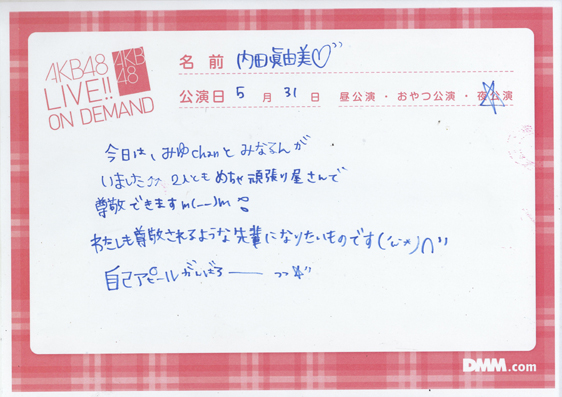 AKB48
LIVE!!
ON DEMAND
AKB
48
名前 内田眞由美♡
公演日 5月31日 昼公演・おやつ公演・夜公演
今日は、みゆchanとみなるんが
いました♪♪ 2人ともめちゃ頑張り屋さんで
尊敬できますm(__)m
わたしも尊敬されるような先輩になりたいものです
自己アピールがんばろ——っっ☆"
DMM.com